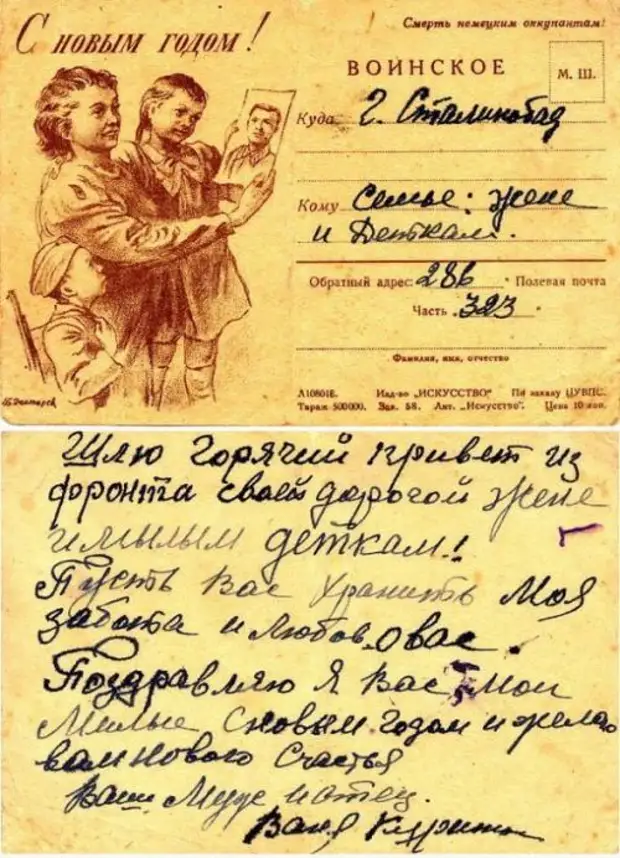 С новым годом!
Смерть немецким оккупантам!
ВОИНСКОЕ
М. Ш.
Куда г. Сталинобад
Кому Семье: жене
и Деткам.
Обратный адрес: 286 Полевая почта
Часть 323
Фамилия, имя, отчество
Л108018. Изд-во „ИСКУССТВО“ По заказу ЦУВПС.
Тираж 500000. Зак. 58. Лит. „Искусство“. Цена 10 коп.
Шлю горячий привет из
фронта своей дорогой жене
и милым деткам!
Пусть Вас Хранить Моя
забота и любов о вас.
Поздравляю Я Вас Мои
Милые С новым годом и желаю
вам нового счастья
Ваш Муж и отец.
Ваня